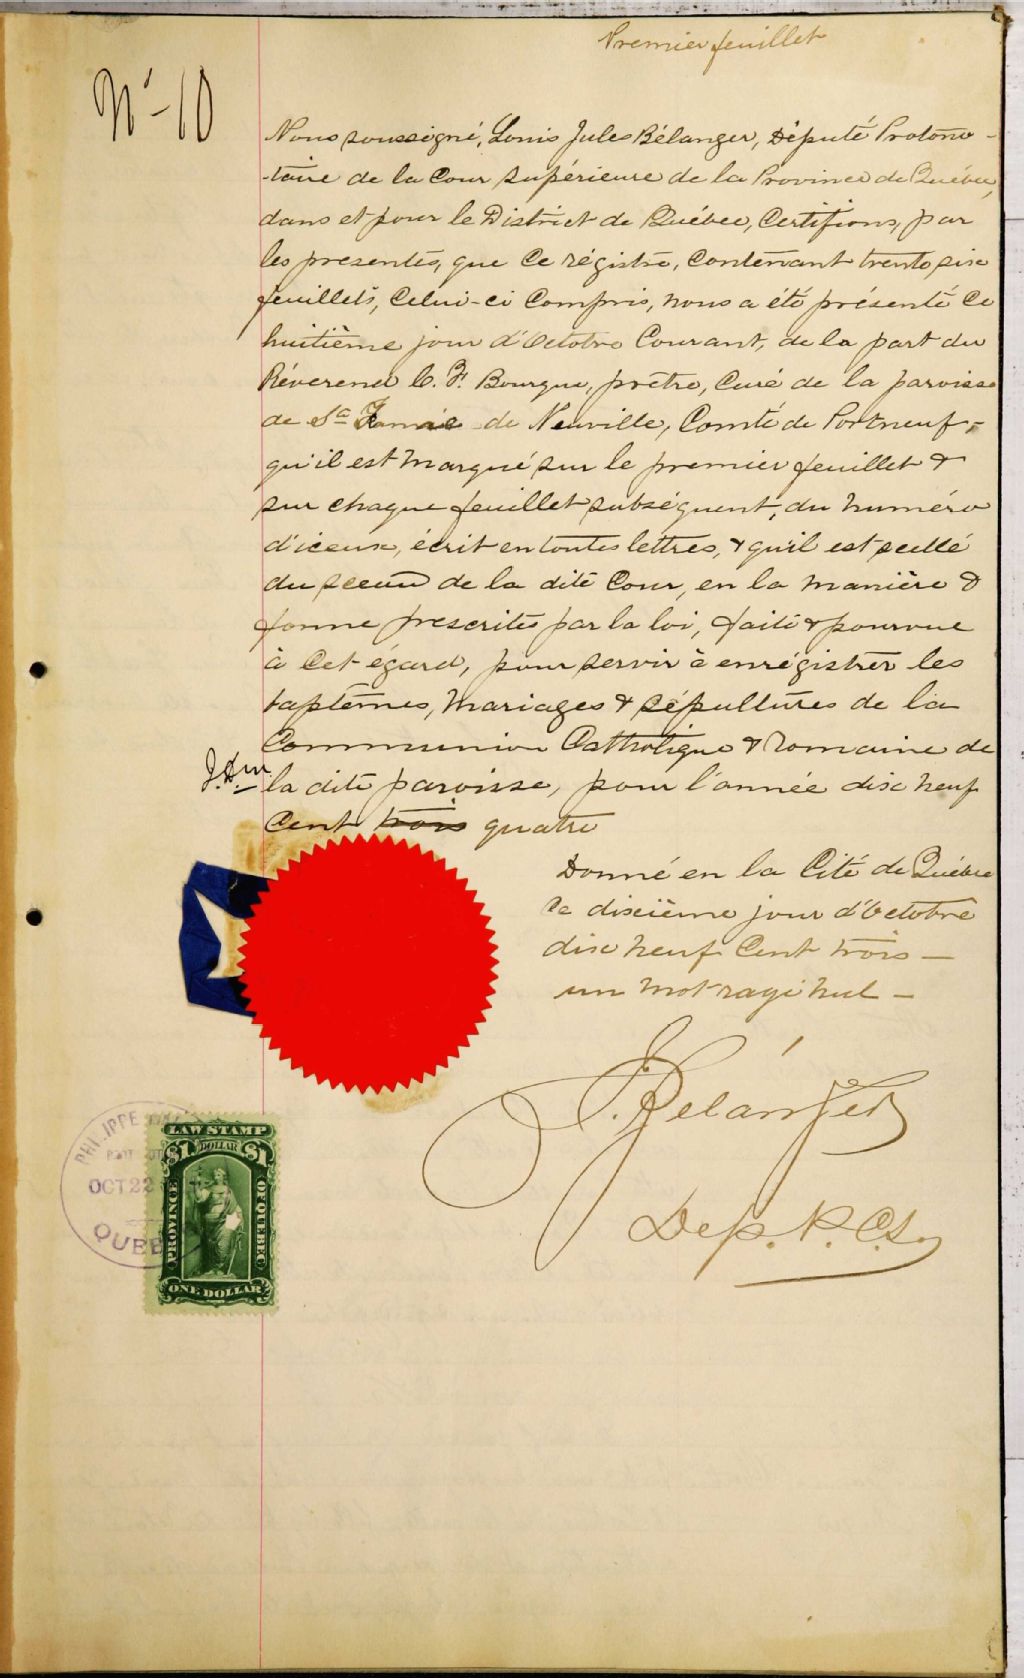 Premier feuillet
No - 10
Nous soussigné, Louis Jules Bélanger, Député Protono-
-taire de la Cour Supérieure de la Province de Québec,
dans et pour le District de Québec, Certifions, par
les presentes, que ce régistre, Contenant trente six
feuillets, Celui-ci Compris, nous a été présenté Ce
huitième jour d'Octobre Courant, de la part du
Réverend Bourque, prêtre, Curé de la paroisse
de de Neuville, Comté de Portneuf,
qu'il est marqué sur le premier feuillet &
sur chaque feuillet subséquent, du numéro
d'iceux, écrit en toutes lettres, & qu'il est scellé
du sceau de la dite Cour, en la manière &
forme prescrites par la loi, faite & pourvue
à cet égard, pour servir à enrégistrer les
baptêmes, Mariages & sépultures de la
Communion Catholique & Romaine de
la dite paroisse, pour l'année dix neuf
Cent trois quatre
Donné en la Cité de Québec
ce dixième jour d'Octobre
dix neuf Cent trois —
un mot rayé nul —
J. Bélanger
Dep. P. C. S.
PHILIPPE
OCT 22
QUEB
LAW STAMP
$1 DOLLAR $1
PROVINCE OF QUEBEC
ONE DOLLAR